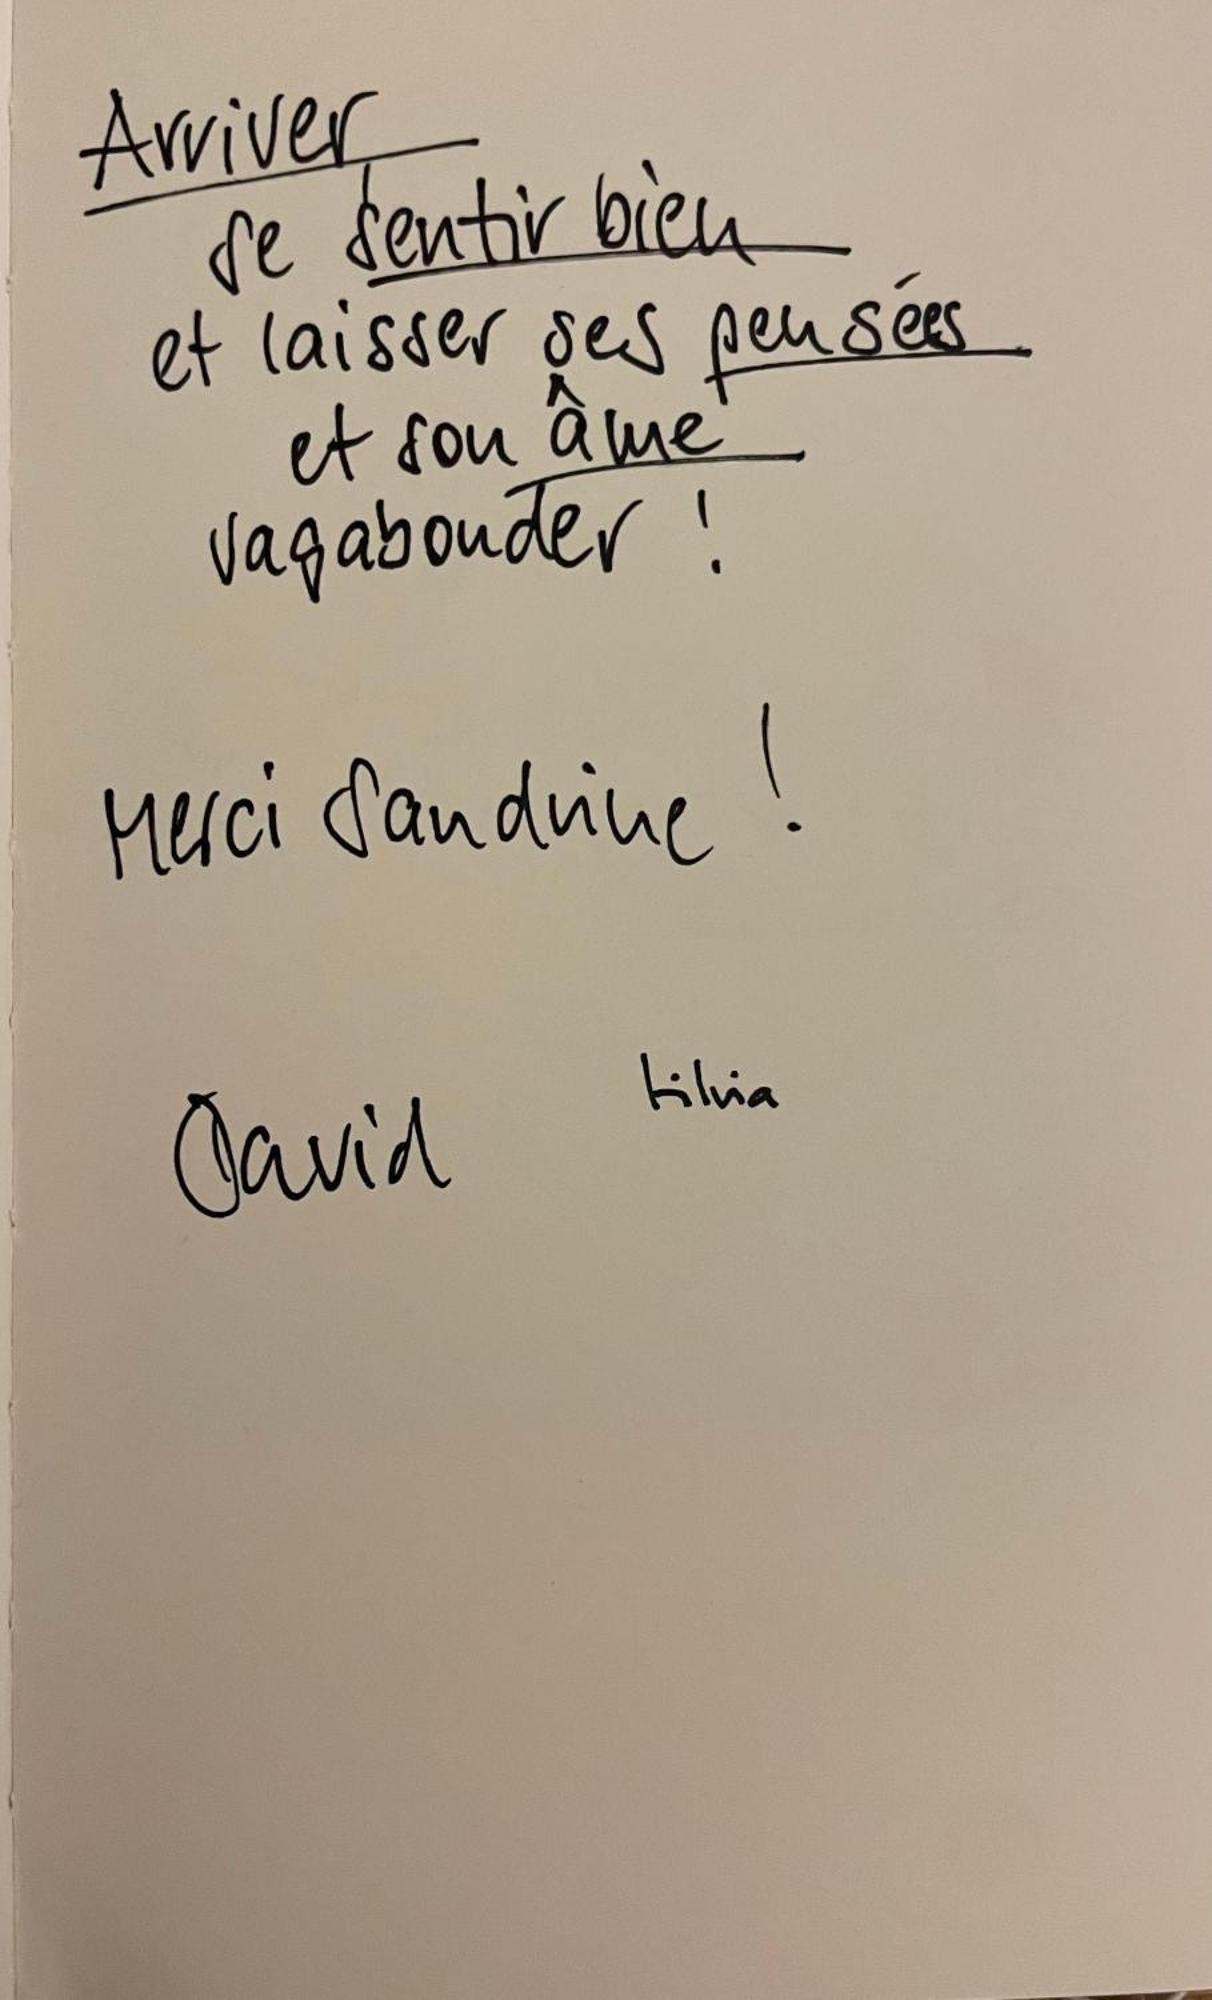 Arriver
se sentir bien
et laisser ses pensées
et son âme
vagabonder !
Merci Sandrine !
David